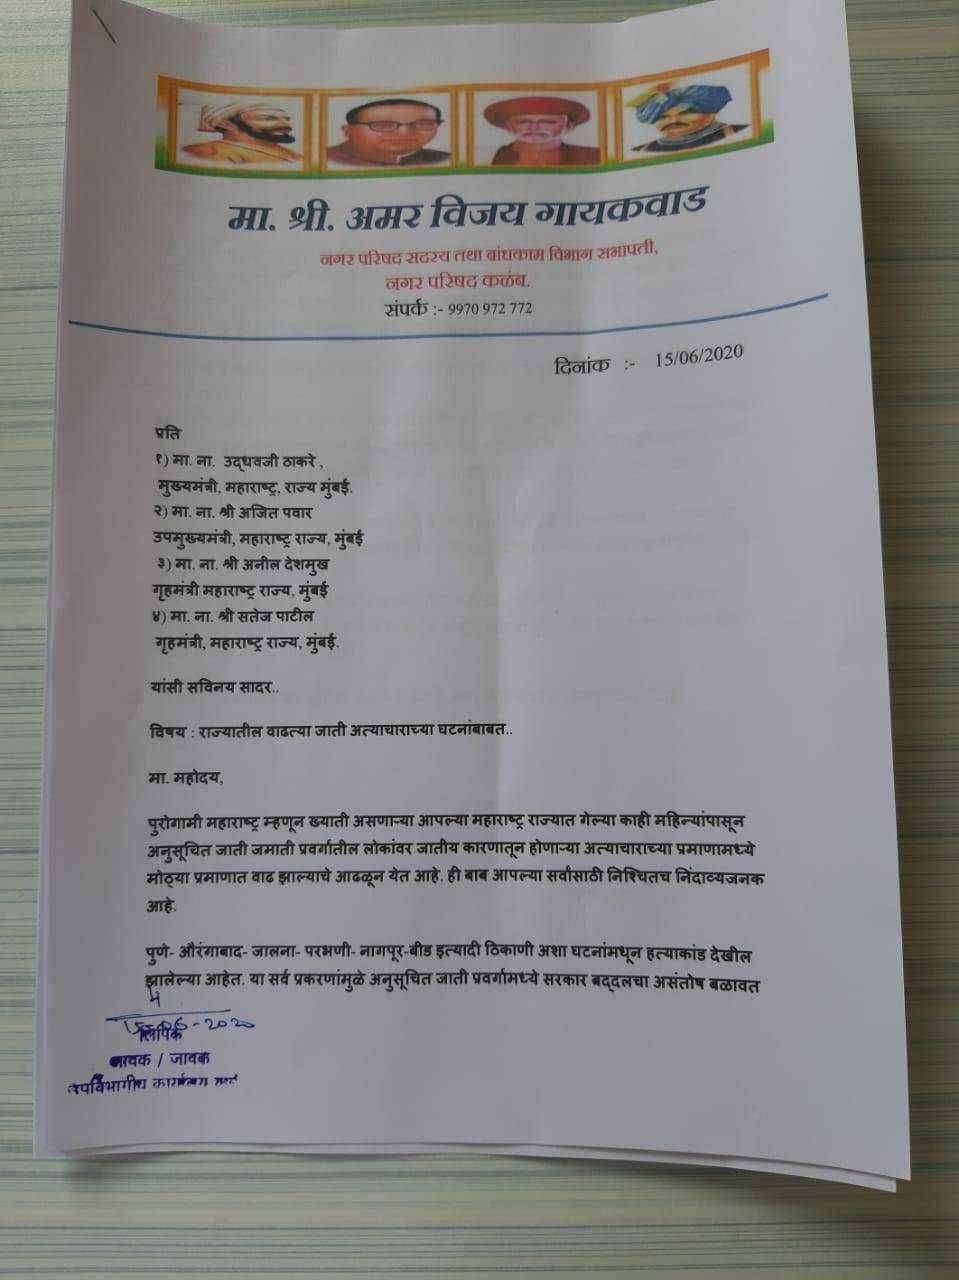 मा. श्री. अमर विजय गायकवाड
नगर परिषद सदस्य तथा बांधकाम विभाग सभापती,
नगर परिषद कळंब.
संपर्क :- 9970 972 772
दिनांक :- 15/06/2020
प्रति
१) मा. ना. उद्धवजी ठाकरे ,
मुख्यमंत्री, महाराष्ट्र, राज्य मुंबई.
२) मा. ना. श्री अजित पवार
उपमुख्यमंत्री, महाराष्ट्र राज्य, मुंबई
३) मा. ना. श्री अनील देशमुख
गृहमंत्री महाराष्ट्र राज्य, मुंबई
४) मा. ना. श्री सतेज पाटील
गृहमंत्री, महाराष्ट्र राज्य, मुंबई.
यांसी सविनय सादर..
विषय : राज्यातील वाढत्या जाती अत्याचाराच्या घटनांबाबत..
मा. महोदय,
पुरोगामी महाराष्ट्र म्हणून ख्याती असणाऱ्या आपल्या महाराष्ट्र राज्यात गेल्या काही महिन्यांपासून
अनुसूचित जाती जमाती प्रवर्गातील लोकांवर जातीय कारणातून होणाऱ्या अत्याचाराच्या प्रमाणामध्ये
मोठ्या प्रमाणात वाढ झाल्याचे आढळून येत आहे. ही बाब आपल्या सर्वांसाठी निश्चितच निंदाव्यजनक
आहे.
पुणे- औरंगाबाद- जालना- परभणी- नागपूर-बीड इत्यादी ठिकाणी अशा घटनांमधून हत्याकांड देखील
झालेल्या आहेत. या सर्व प्रकरणांमुळे अनुसूचित जाती प्रवर्गामध्ये सरकार बद्दलचा असंतोष बळावत
लिपिक
आवक / जावक
उपविभागीय कार्यालय